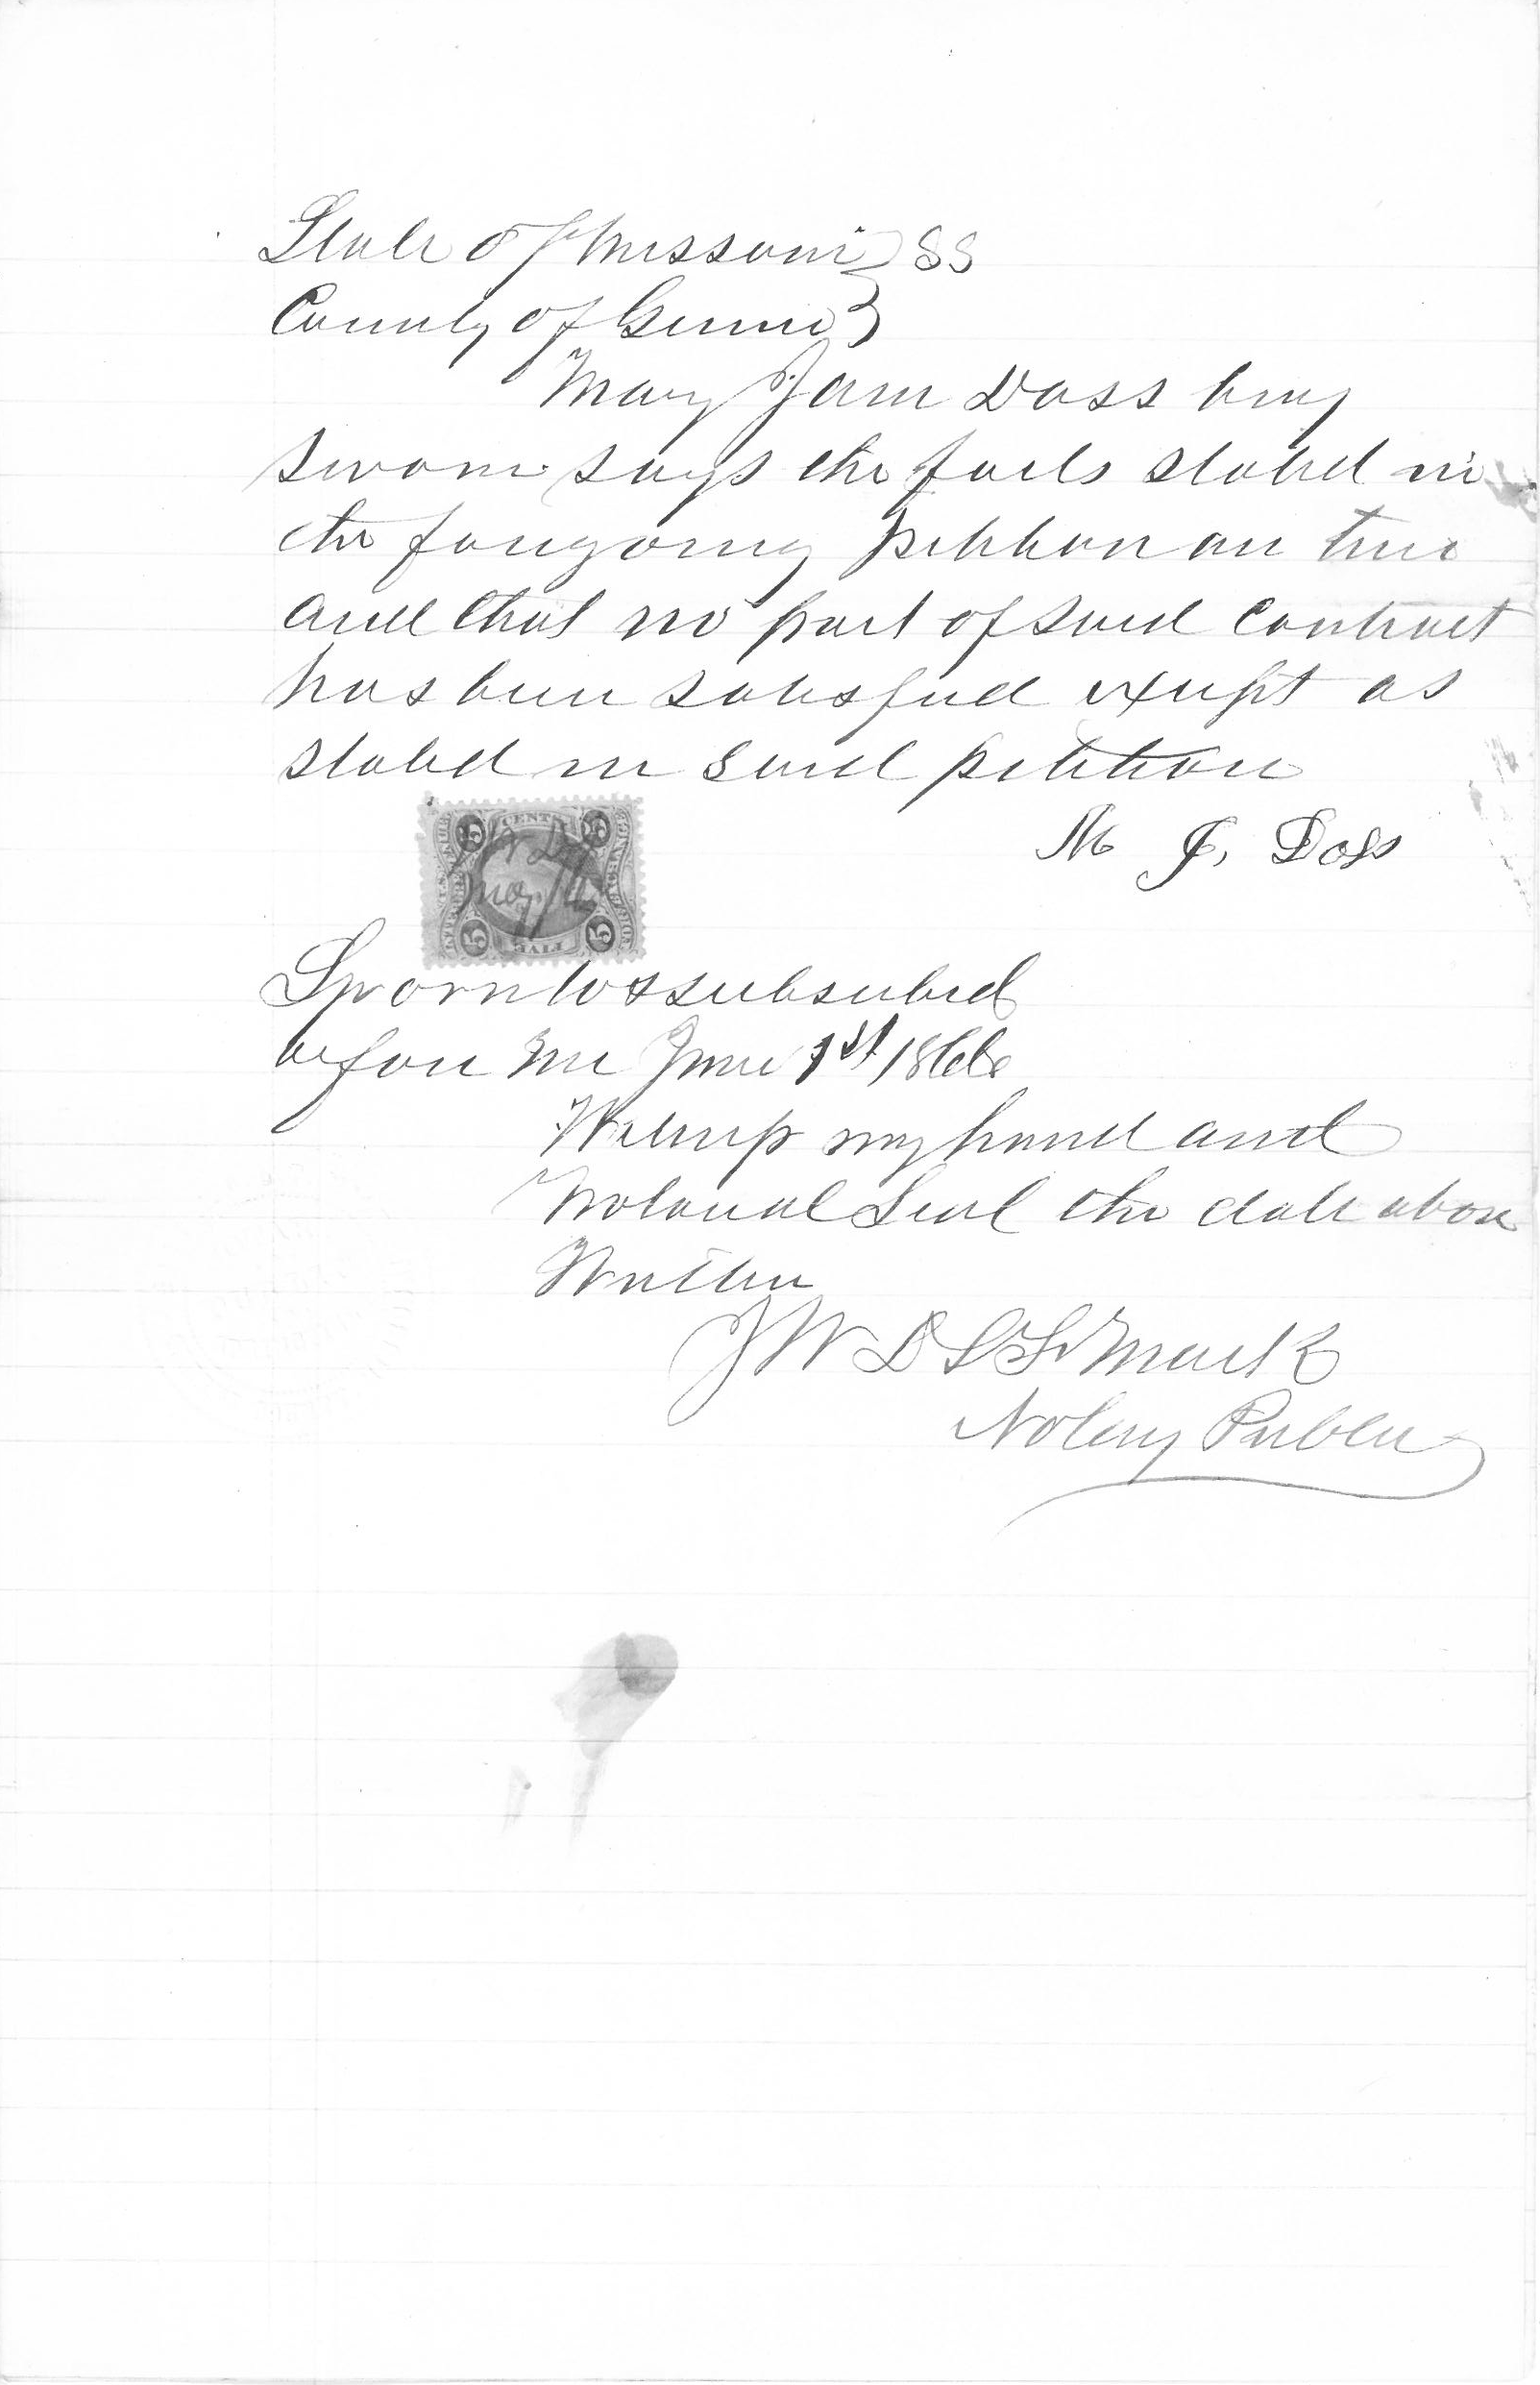 State of Missouri } SS
County of Greene }
Mary Jane Doss being
sworn says the facts stated in
the foregoing petition are true
and that no part of said contract
has been satisfied except as
stated in said petition
M J. Doss
5 CENTS 5
5 FIVE 5
Sworn to & subscribed
before me June 1st 1866
Witness my hand and
Notarial Seal the date above
Written
Notary Public